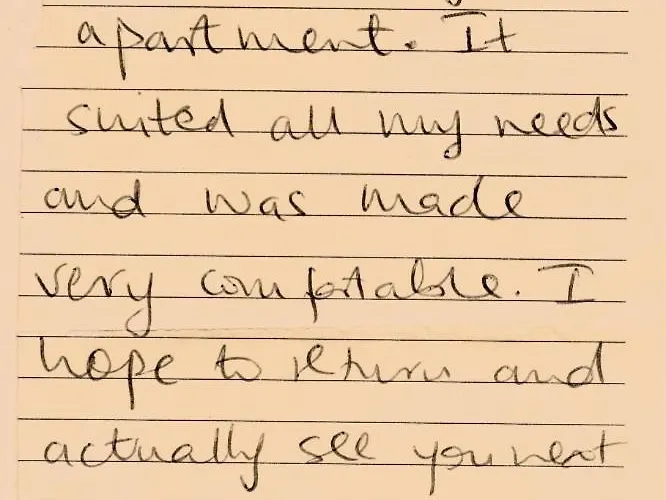 apartment. It
suited all my needs
and was made
very comfortable. I
hope to return and
actually see you next